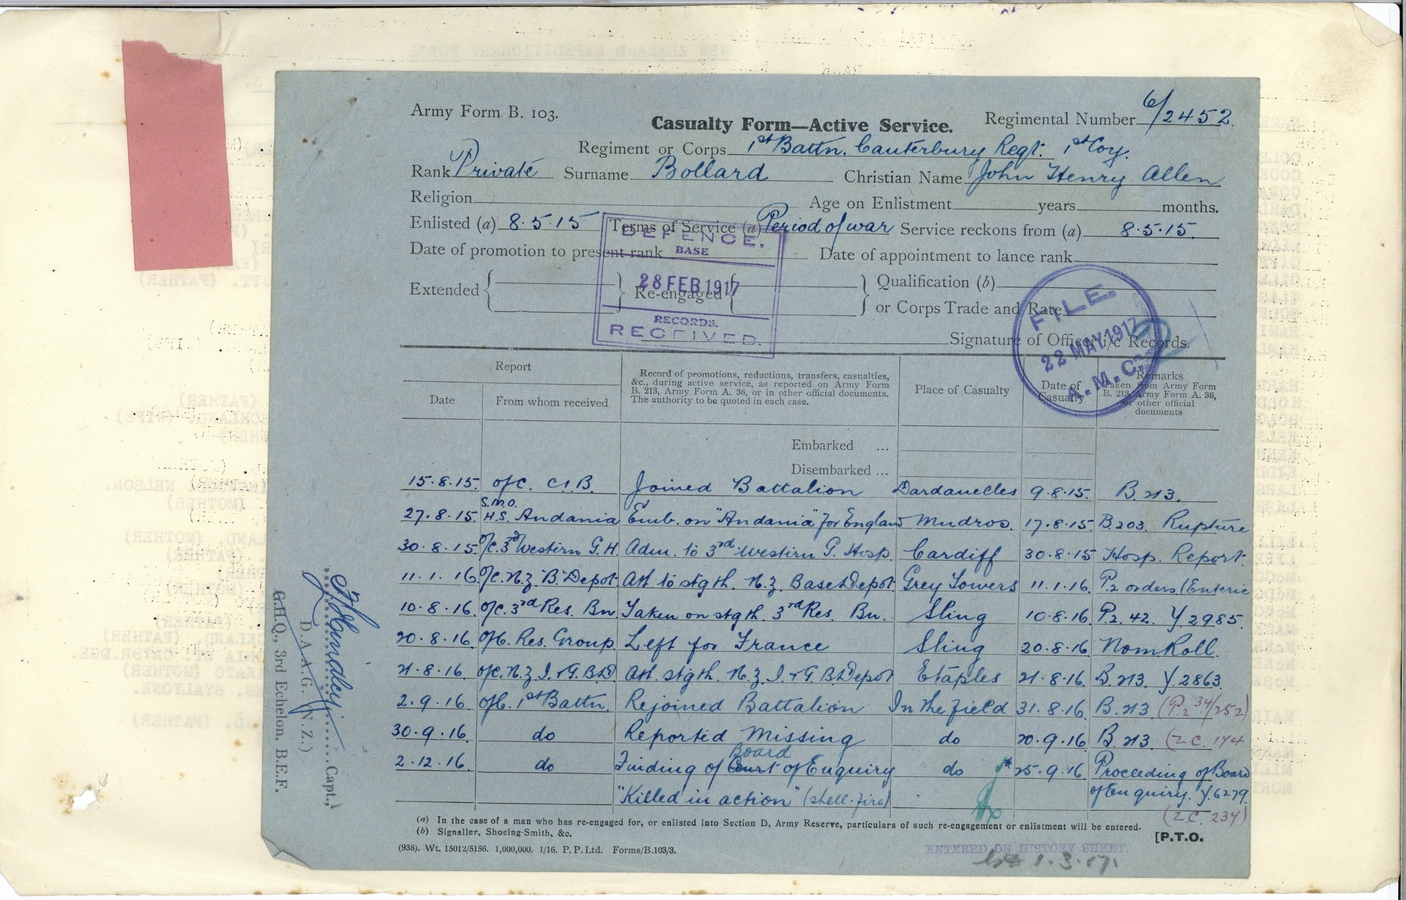 Army Form B. 103.
Casualty Form—Active Service.
Regimental Number 6/2452
Regiment or Corps 1st Battn. Canterbury Regt. 1st Coy.
Rank Private Surname Bollard Christian Name John Henry Allen
Religion Age on Enlistment years months.
Enlisted (a) 8.5.15 Terms of Service (a) Period of war Service reckons from (a) 8.5.15.
Date of promotion to present rank Date of appointment to lance rank
Extended Re-engaged Qualification (b)
or Corps Trade and Rate
Signature of Officer i/c Records.
DEFENCE.
BASE
28 FEB 1917
RECORDS.
RECEIVED.
FILE.
22 MAY 1917
A.M.C.
Report Record of promotions, reductions, transfers, casualties, &c., during active service, as reported on Army Form B. 213, Army Form A. 36, or in other official documents. The authority to be quoted in each case. Place of Casualty Date of Casualty Remarks taken from Army Form B. 213, Army Form A. 36, or other official documents
Date From whom received
Embarked ...
Disembarked ...
15.8.15. o/c. C.I.B. Joined Battalion Dardanelles 9.8.15. B.213.
27.8.15. S.M.O. H.S. Andania Emb. on "Andania" for England Mudros. 17.8.15 B.203. Rupture
30.8.15. o/c. 3rd Western G.H. Adm. to 3rd Western G. Hosp. Cardiff 30.8.15 Hosp. Report.
11.1.16. o/c. N.Z. "B" Depot. Att to stgth. N.Z. Base Depot Grey Towers 11.1.16. P2 orders (Enteric
10.8.16. o/c. 3rd Res. Bn. Taken on stgth. 3rd Res. Bn. Sling 10.8.16. P2. 42. Y2985.
20.8.16. o/c. Res. Group. Left for France Sling 20.8.16. Nom Roll.
21.8.16. o/c. N.Z. I. & G.B.D Att. stgth. N.Z. I. & G.B. Depot Etaples 21.8.16 B.213 Y2863.
2.9.16. o/c. 1st Battn. Rejoined Battalion In the field 31.8.16. B.213 (P.2 34/252)
30.9.16. do Reported Missing do 20.9.16 B.213 (Z.C. 174
2.12.16. do Finding of Board of Enquiry do 25.9.16. Proceeding of Board
"Killed in action" (shell-fire) of Enquiry. Y.6279.
(Z.C. 234)
(a) In the case of a man who has re-engaged for, or enlisted into Section D, Army Reserve, particulars of such re-engagement or enlistment will be entered.
(b) Signaller, Shoeing-Smith, &c.
[P.T.O.
(938). Wt. 15012/5156. 1,000,000. 1/16. P. P. Ltd. Forms/B.103/3.
ENTERED ON HISTORY SHEET.
1.3.17.
Capt.,
D.A.A.G. (N.Z.)
G.H.Q., 3rd Echelon, B.E.F.